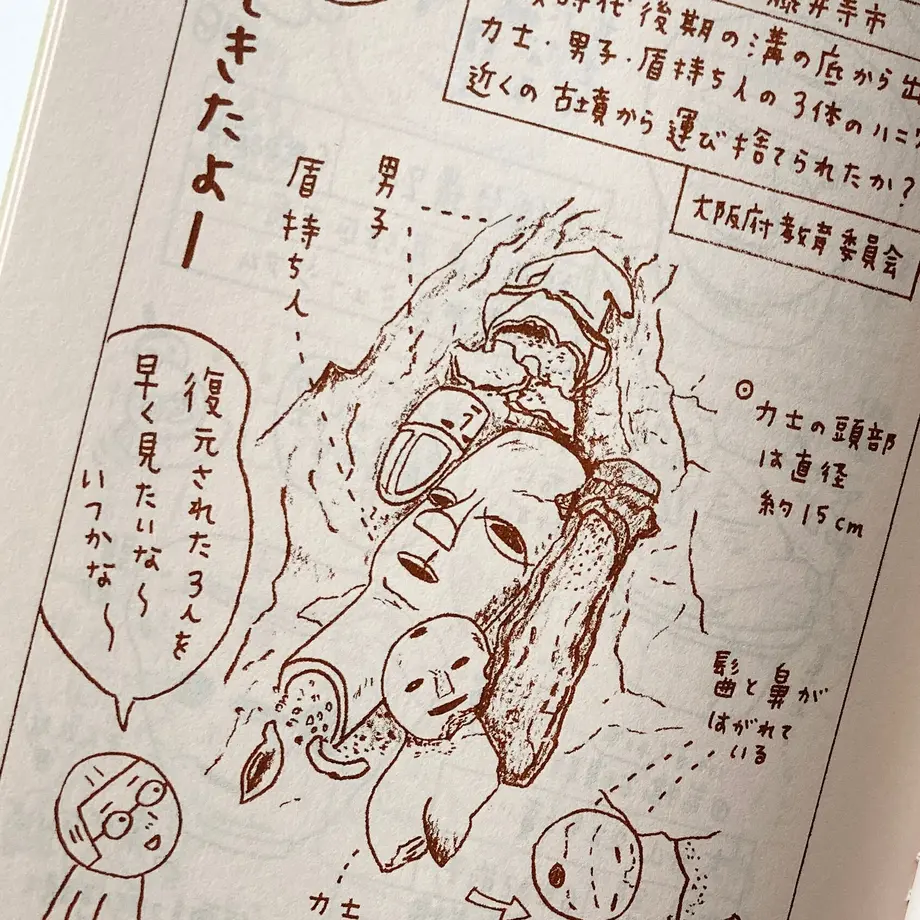 藤井寺市
時代後期の溝の底から出
力士・男子・盾持ち人の3体のハニ
近くの古墳から運び捨てられたか?
大阪府教育委員会
きたよー
男子
盾持ち人
復元された3人を
早く見たいな〜
いつかな〜
⊙力士の頭部
は直径
約15cm
髷と鼻が
はがれて
いる
力士